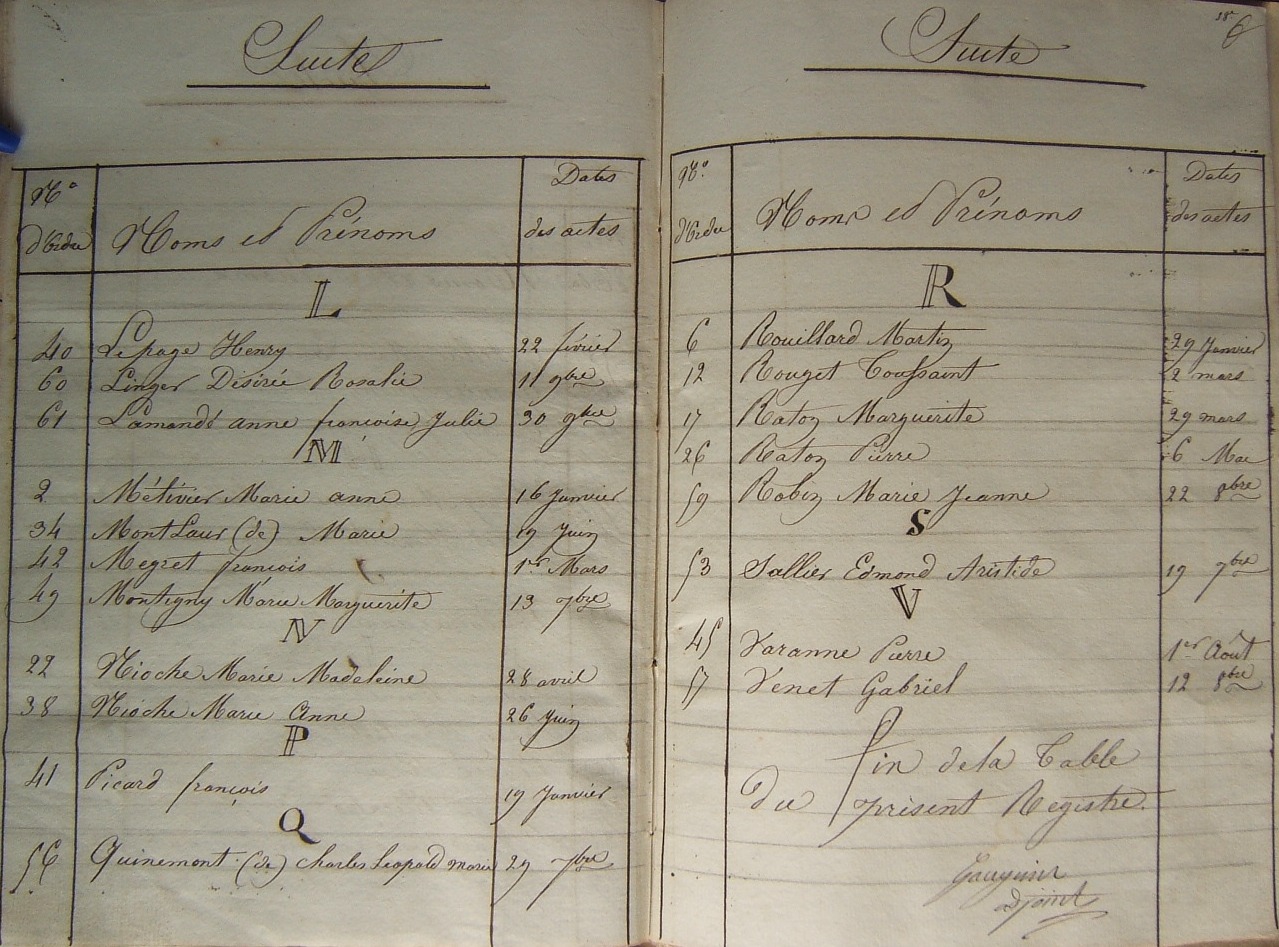 Suite
N.o Dates
d'Ordre Noms et Prénoms des actes
L
40 Lepage Henry 22 février
60 Linger Désirée Rosalie 11 9bre
61 Lamandé anne françoise Julie 30 9bre
M
2 Métivier Marie anne 16 Janvier
34 MontLaur (de) Marie 19 Juin
42 Megret françois 1er Mars
49 Montigny Marie Marguerite 13 7bre
N
22 Nioche Marie Madeleine 28 avril
38 Nioche Marie Anne 26 Juin
P
41 Picard françois 19 Janvier
Q
56 Quinemont (de) Charles Leopold marie 29 7bre
Suite
N.o Dates
d'Ordre Noms et Prénoms des actes
R
6 Rouillard Martin 29 Janvier
12 Rouget Toussaint 2 mars
17 Raton Marguerite 29 mars
26 Raton Pierre 6 Mai
59 Robin Marie Jeanne 22 8bre
S
53 Sallier Edmond Aristide 19 7bre
V
45 Varanne Pierre 1er Août
57 Venet Gabriel 12 8bre
Fin de la Table
Du présent Registre.
adjoint